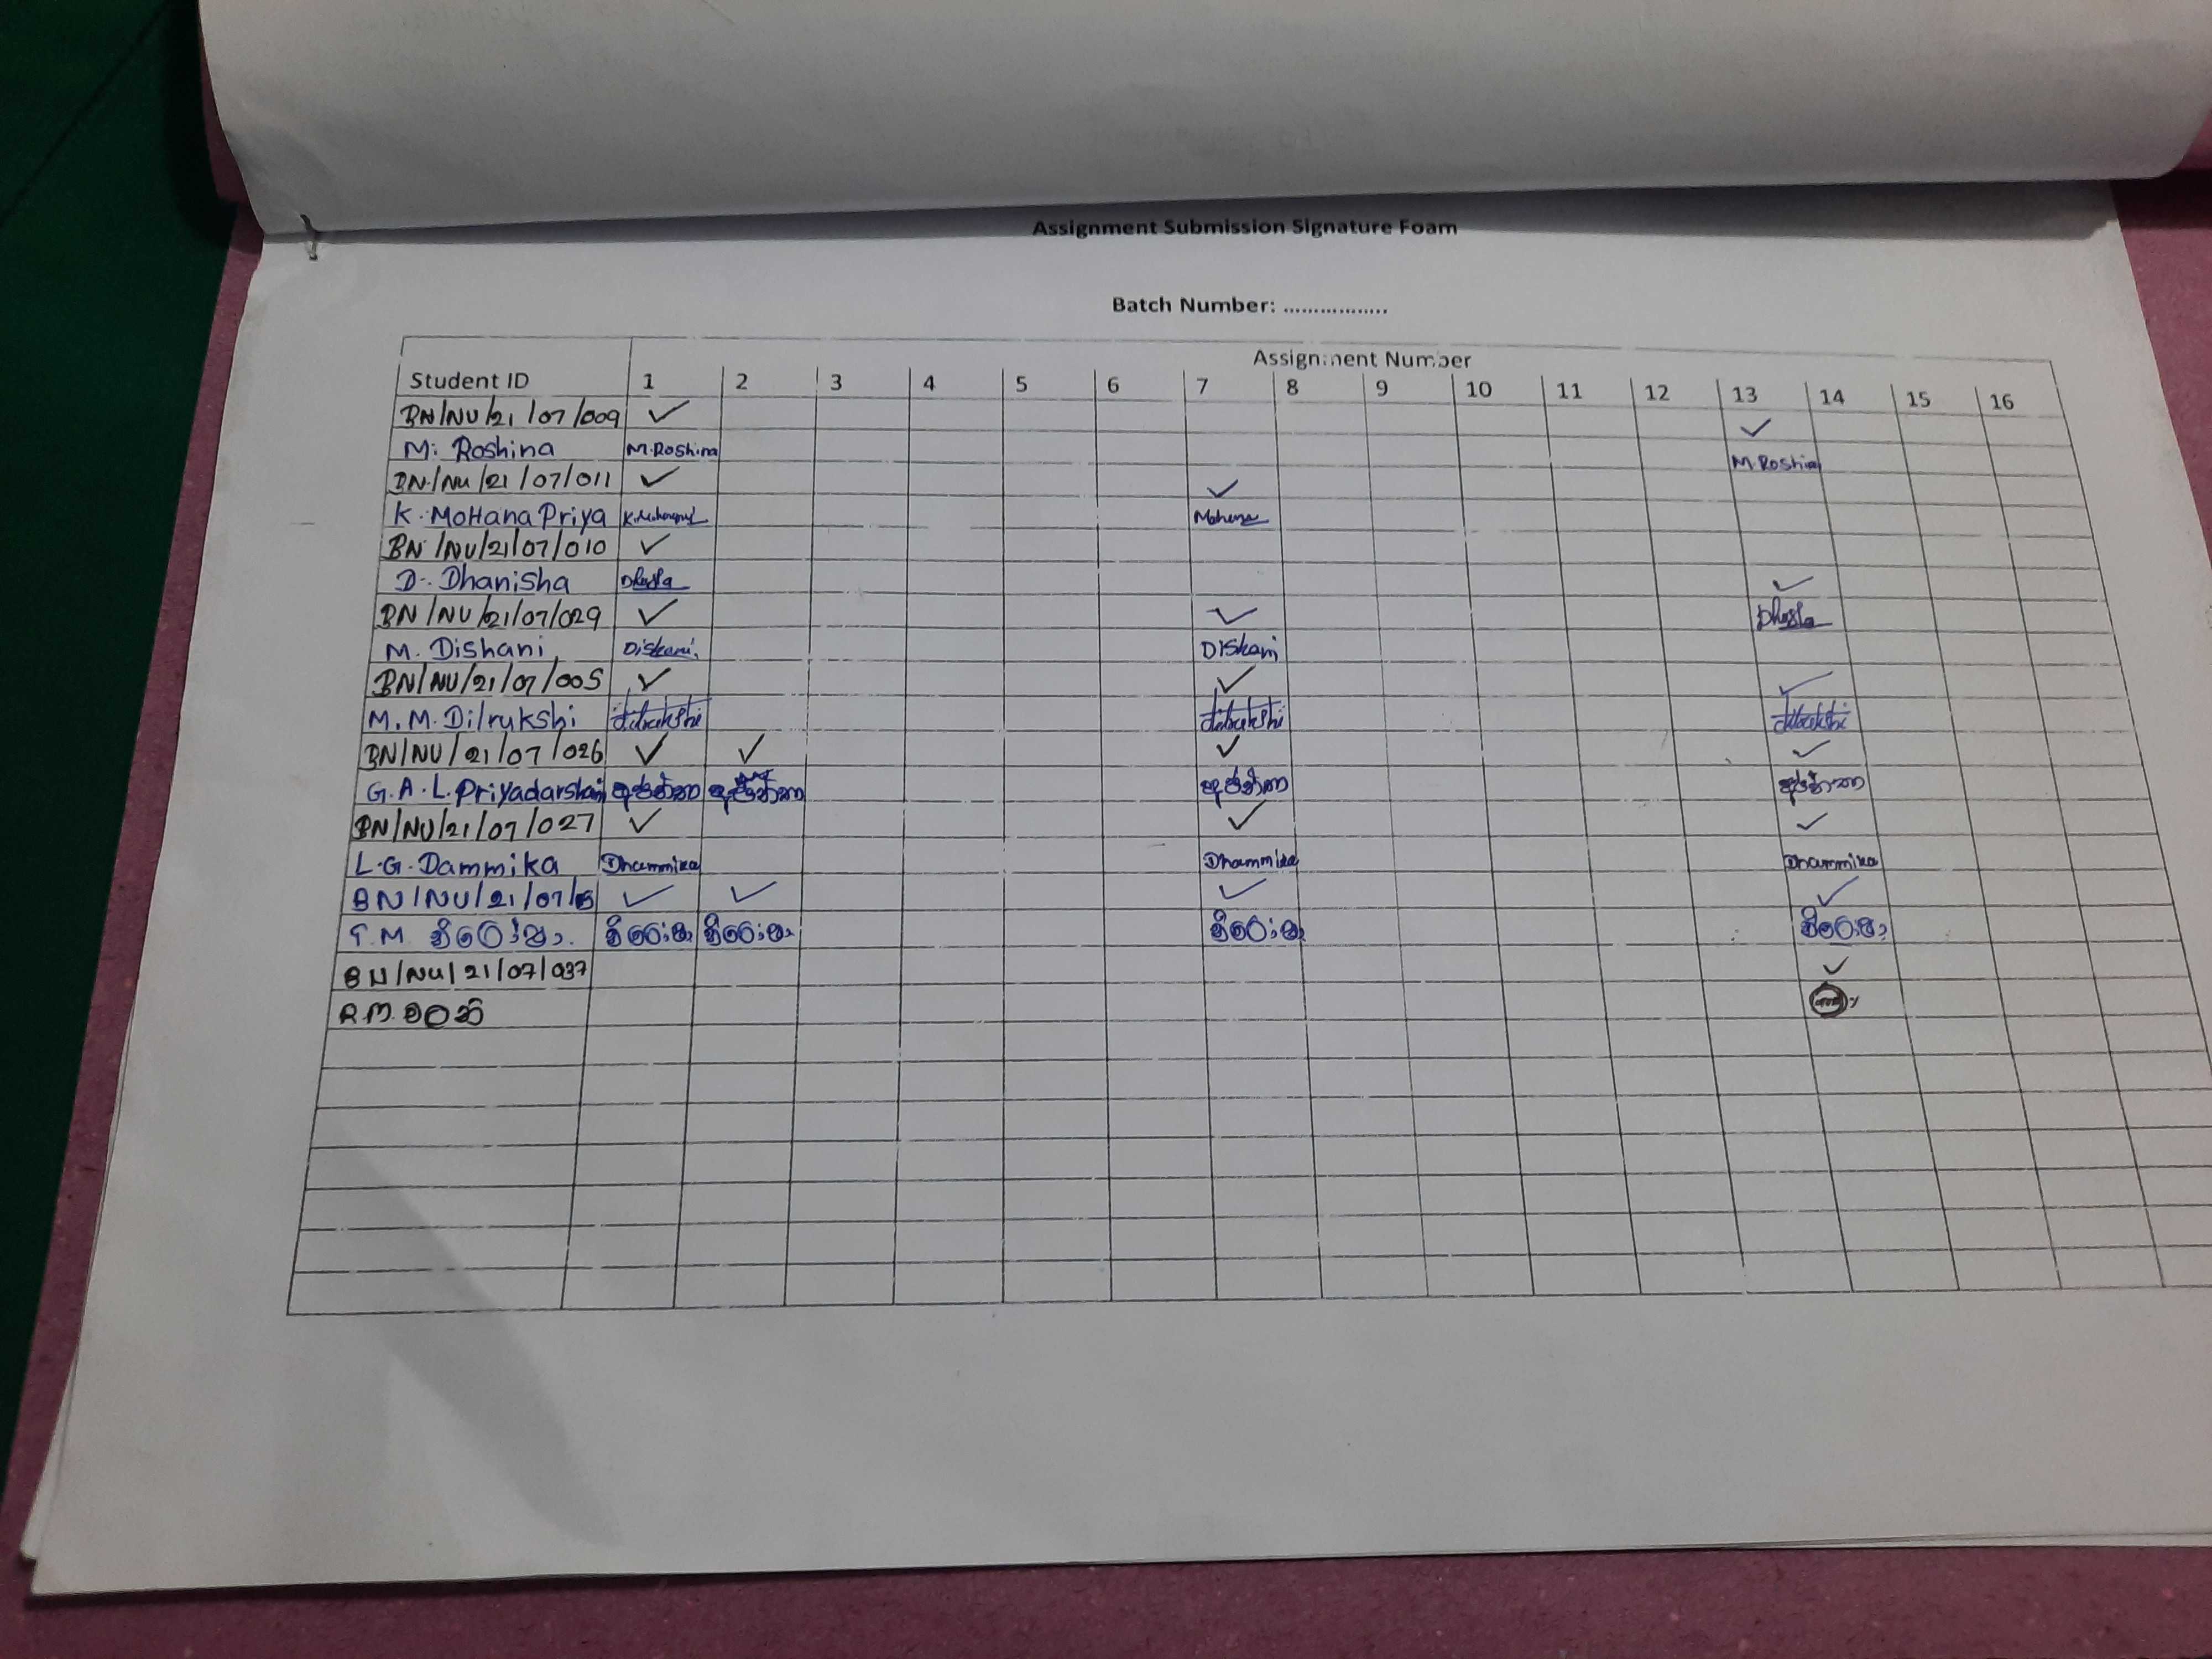 Assignment Submission Signature Foam
Batch Number: .................
Assignment Number
Student ID 1 2 3 4 5 6 7 8 9 10 11 12 13 14 15 16
BN/NU/21/07/009 ✓ ✓
M. Roshina M.Roshina M.Roshina
BN/NU/21/07/011 ✓ ✓
K. MoHana Priya Mohana
BN/NU/21/07/010 ✓ ✓
D. Dhanisha
BN/NU/21/07/029 ✓ ✓
M. Dishani Dishani Dishani
BN/NU/21/07/005 ✓ ✓ ✓
M. M. Dilrukshi dilrukshi dilrukshi dilrukshi
BN/NU/21/07/026 ✓ ✓ ✓ ✓
G. A. L. Priyadarshani
BN/NU/21/07/027 ✓ ✓ ✓
L. G. Dammika Dhammika Dhammika Dhammika
BN/NU/21/07/ ✓ ✓ ✓ ✓
T. M. නිරෝෂා. නිරෝෂා නිරෝෂා නිරෝෂා නිරෝෂා
BN/NU/21/07/037 ✓
R.M.